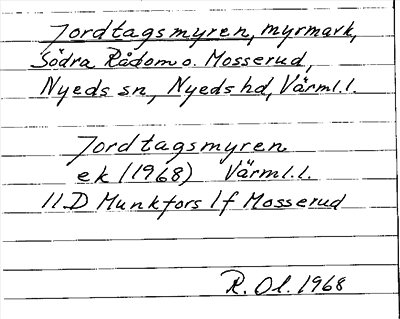 Jordtagsmyren, myrmark,
Södra Rådom o. Mosserud,
Nyeds sn, Nyeds hd, Värml.l.
Jordtagsmyren
ek (1968) Värml.l.
11D Munkfors 1f Mosserud
R. Ol. 1968